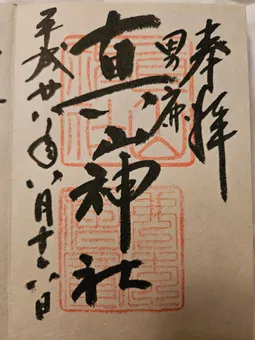 奉拝
男鹿
真山神社
平成廿八年八月十六日